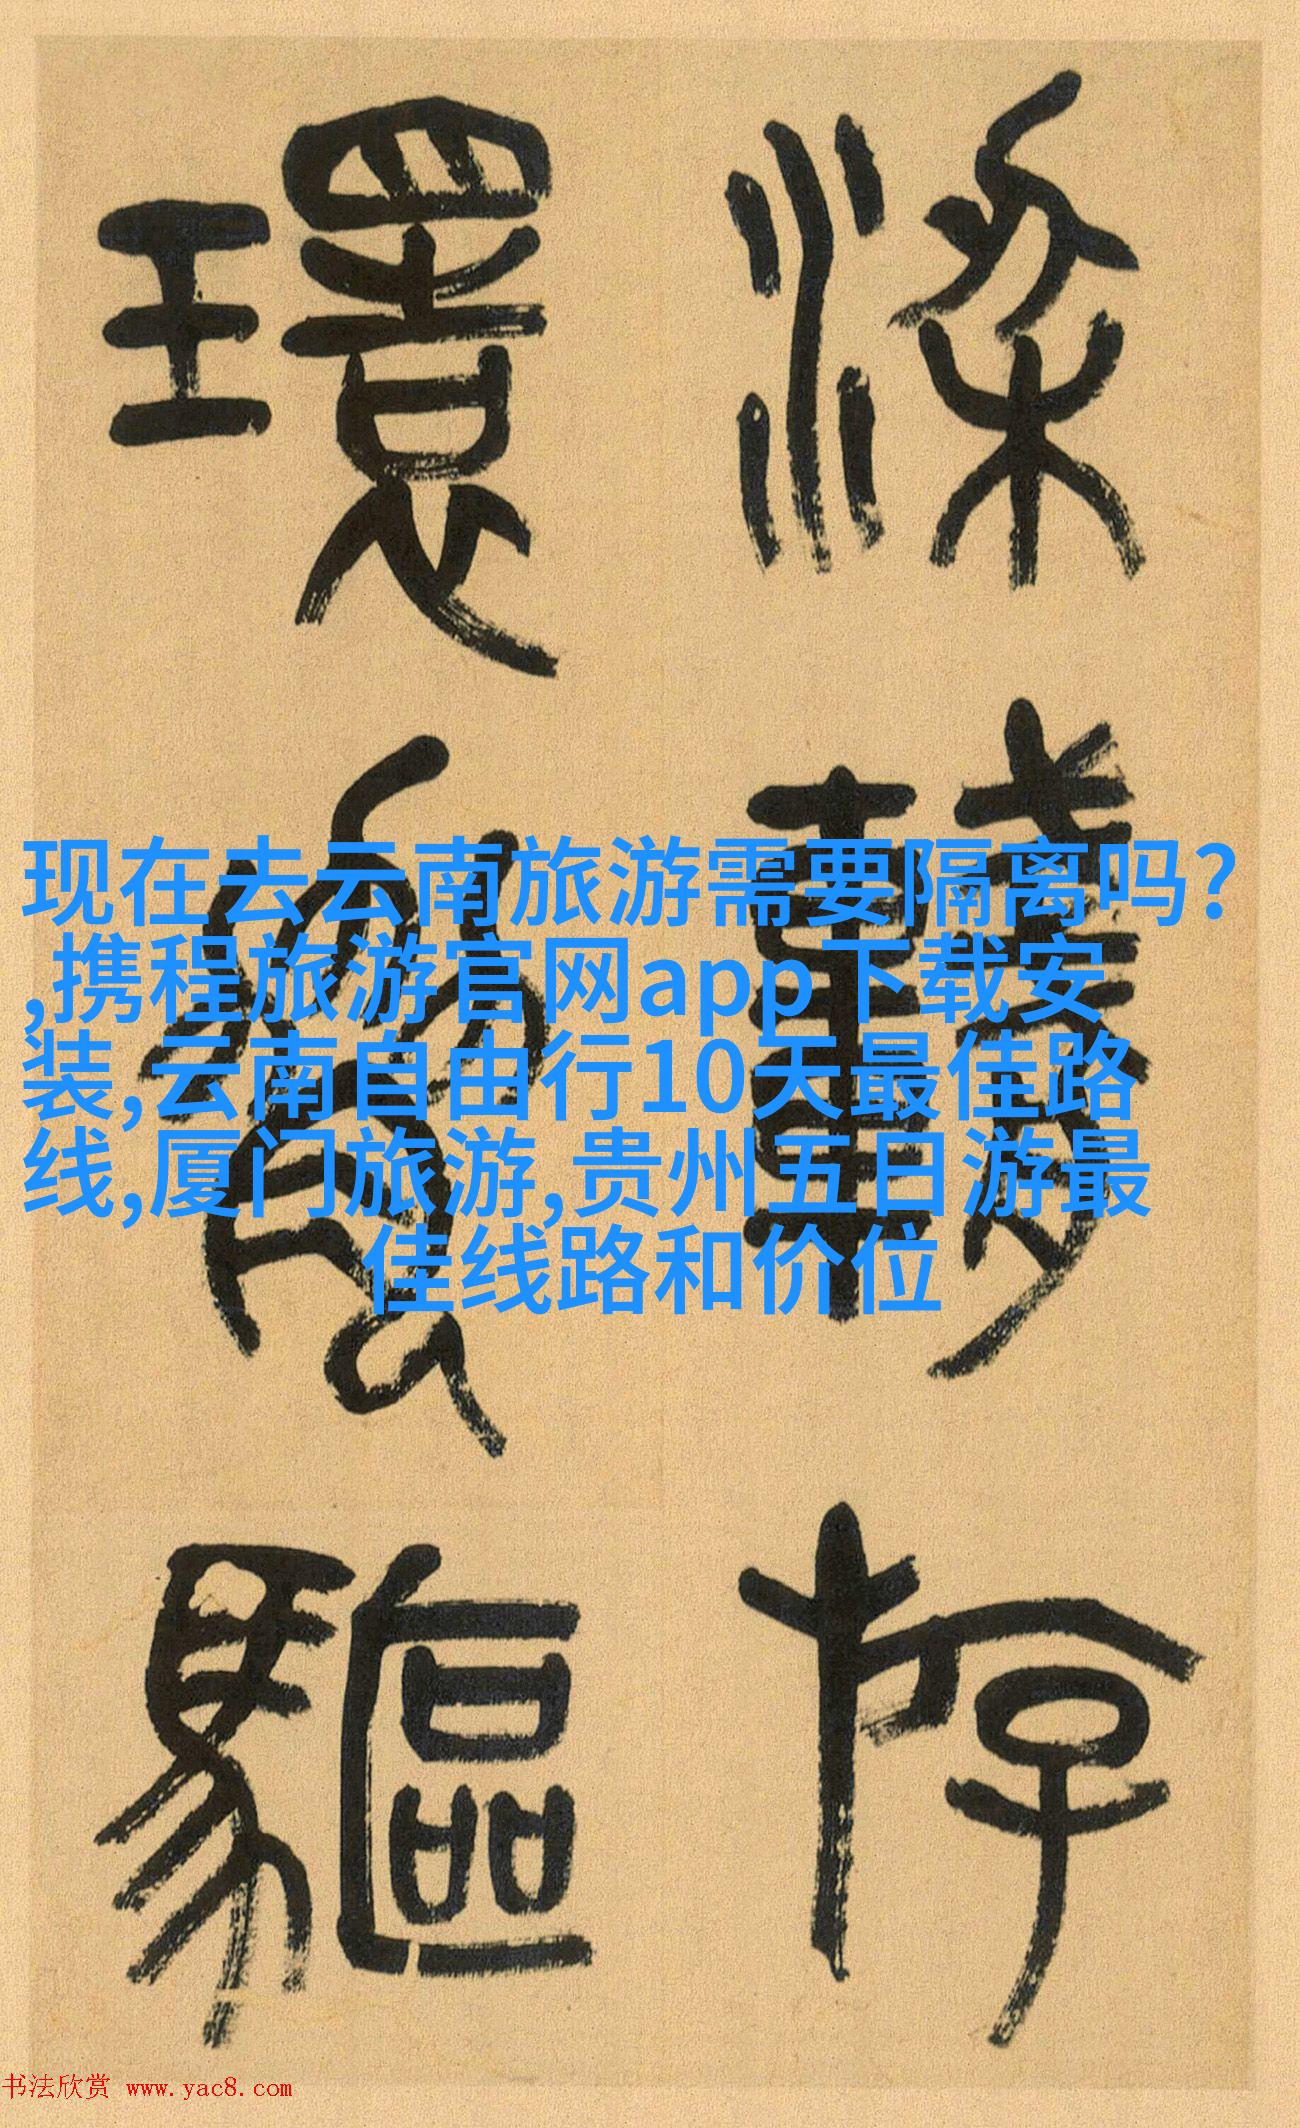 现在去云南旅游需要隔离吗?
,携程旅游官网app下载安
装,云南自由行10天最佳路
线,厦门旅游,贵州五日游最
佳线路和价位
存
環驅
书法欣赏 www.yac8.com